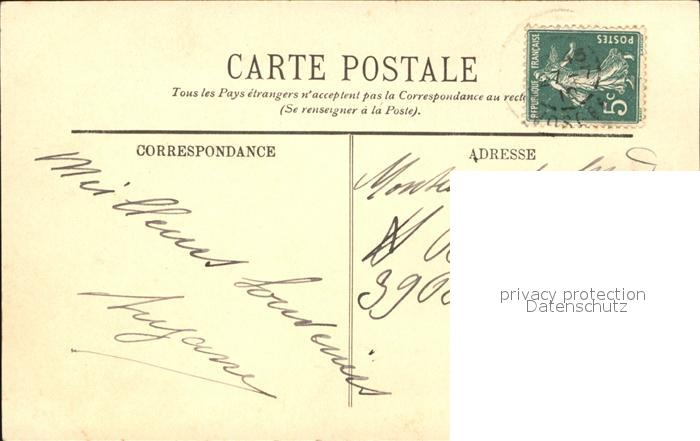 CARTE POSTALE
Tous les Pays étrangers n'acceptent pas la Correspondance au recto
(Se renseigner à la Poste).
RÉPUBLIQUE FRANÇAISE
POSTES
5c
CORRESPONDANCE
ADRESSE
Meilleurs Souvenirs
390
privacy protection
Datenschutz